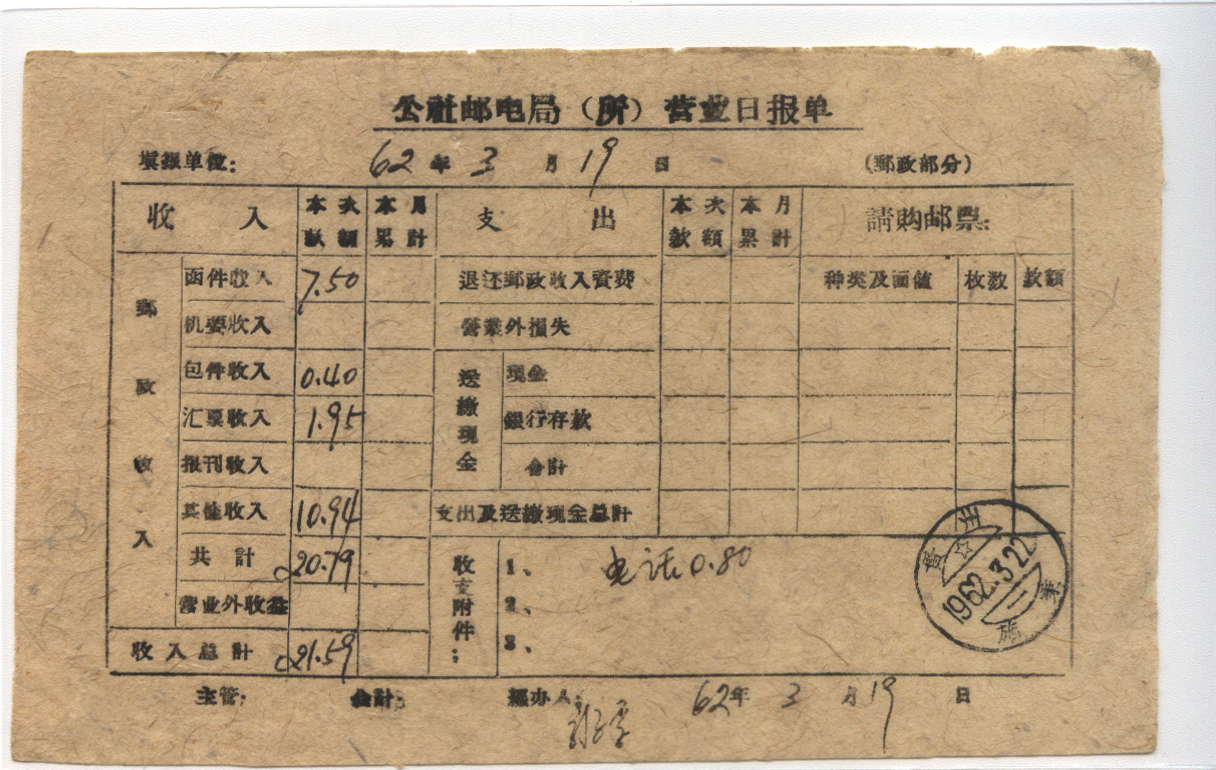 公社邮电局（所）营业日报单
填报单位: 62 年 3 月 19 日 (郵政部分)
收 入 本次款額 本月累計 支 出 本次款額 本月累計 請购邮票:
郵政收入
函件收入 7.50 退还郵政收入資费 种类及面值 枚数 款額
机要收入 营業外損失
包件收入 0.40 送繳現金 現金
汇票收入 1.95 銀行存款
报刊收入 合計
其他收入 10.94 支出及送繳現金总計
共 計 20.79 收支附件: 1、 电话0.80
营业外收益 2、
收入总計 21.59 3、
贵州
1962.3.22
二
主管: 会計: 經办人: 62年 3 月 19 日